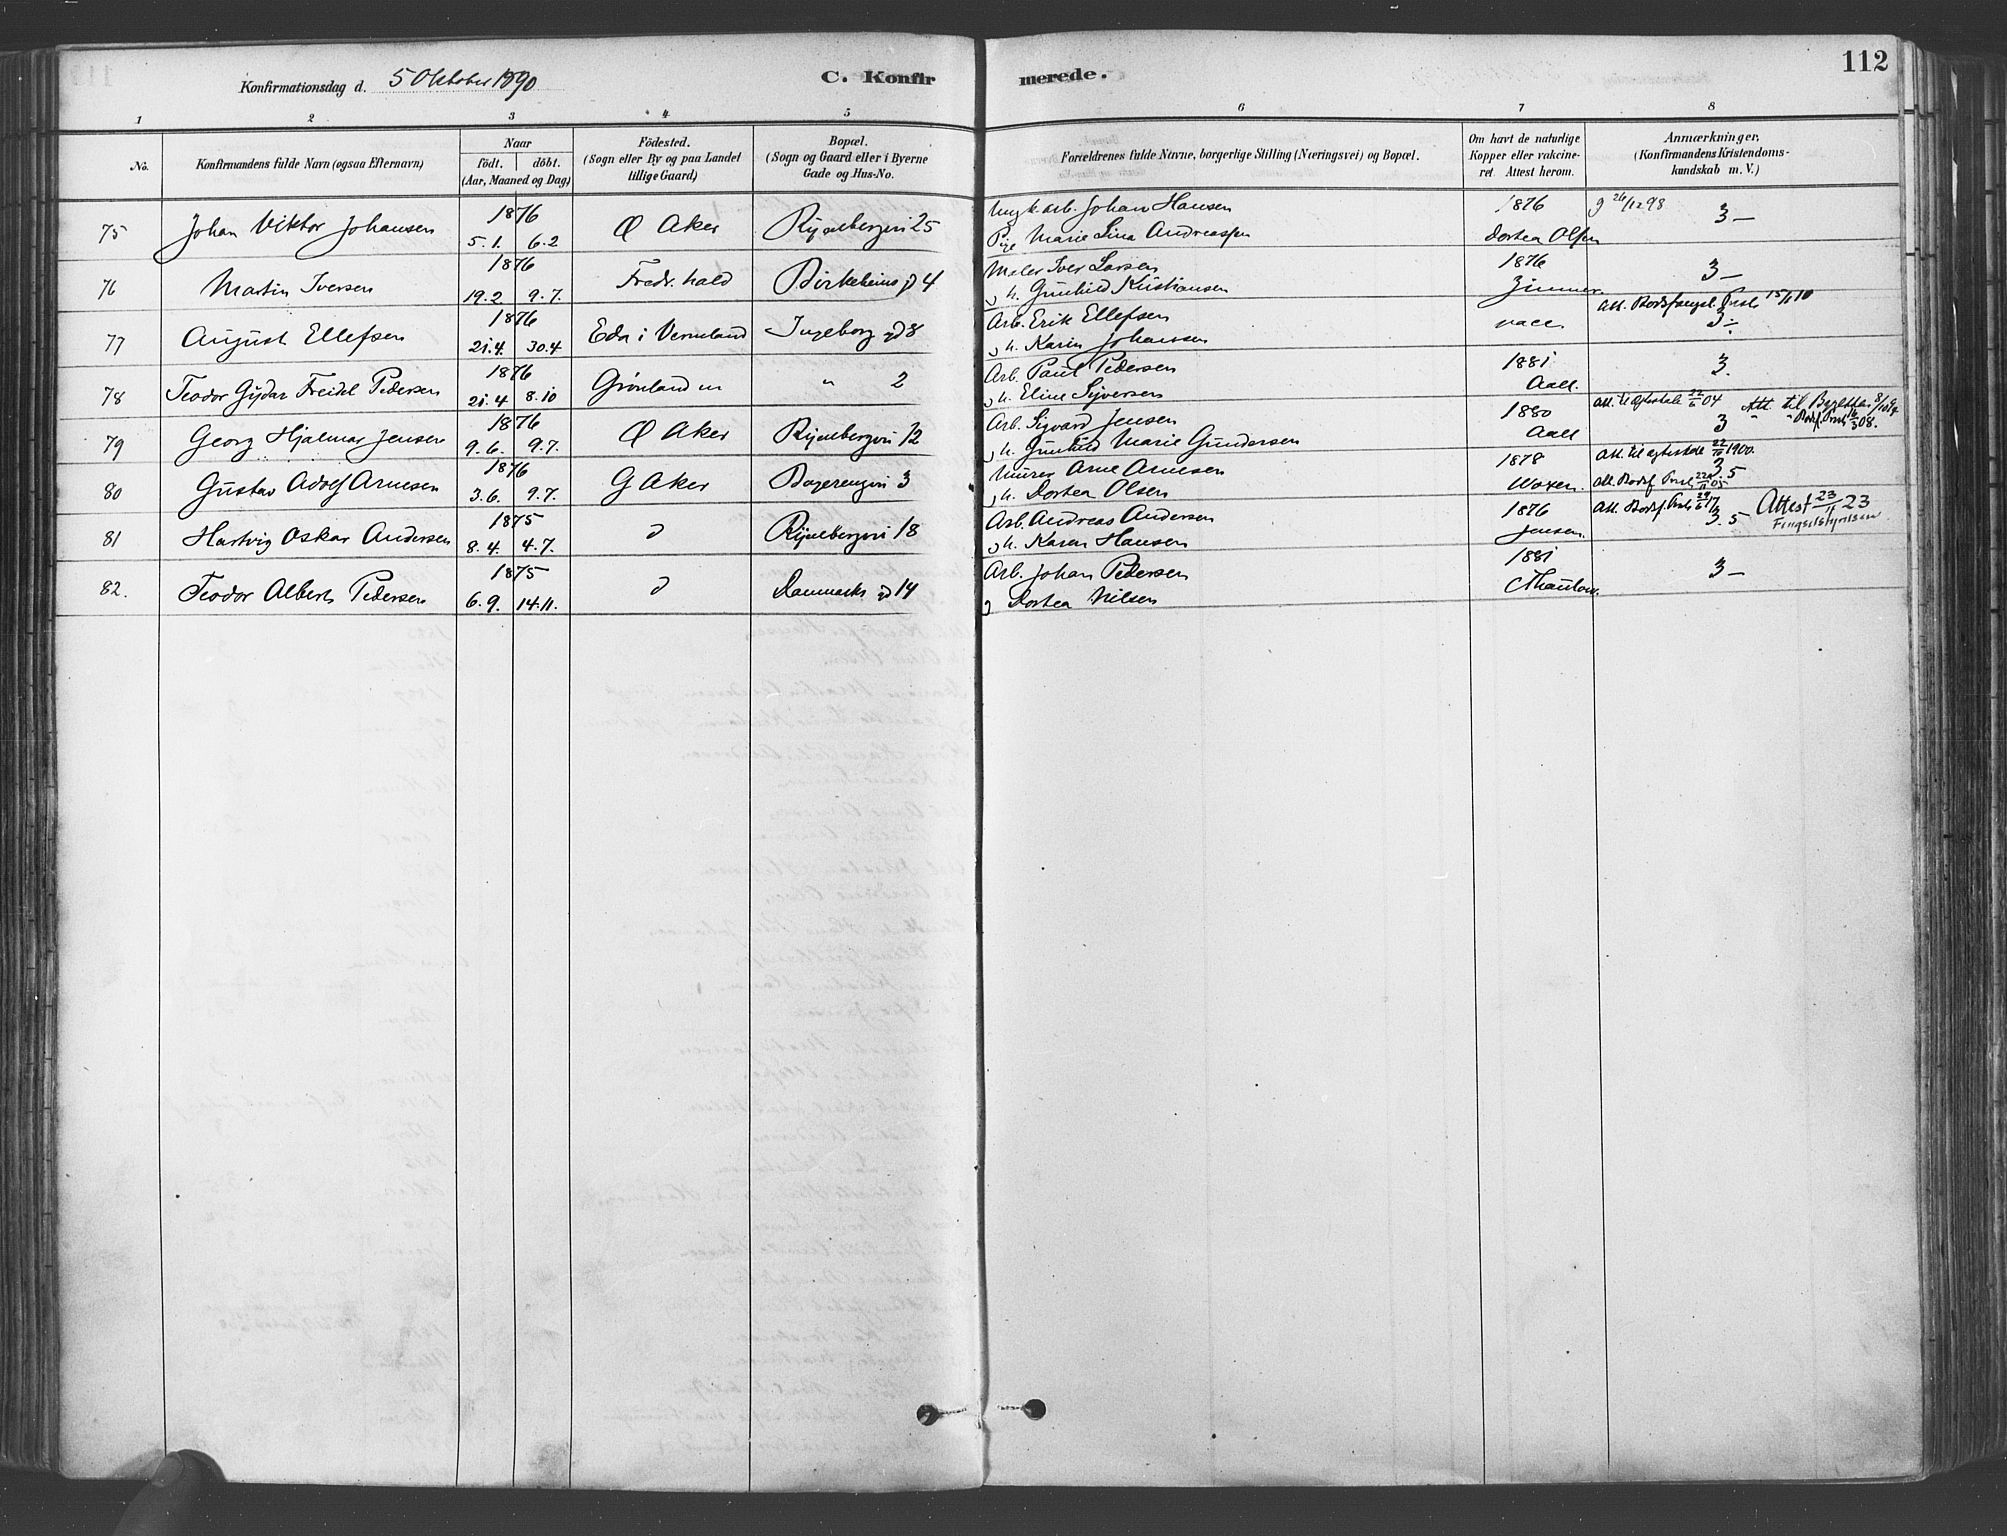 112
Konfirmationsdag d. 5 Oktober 1890
C. Konfirmerede.
1 2 3 4 5 6 7 8
No.
Konfirmandens fulde Navn (ogsaa Efternavn)
Naar
födt. döbt.
(Aar, Maaned og Dag)
Födested.
(Sogn eller By og paa Landet
tillige Gaard)
Bopæl.
(Sogn og Gaard eller i Byerne
Gade og Hus-No.
Forældrenes fulde Navne, borgerlige Stilling (Næringsvei) og Bopæl.
Om havt de naturlige
Kopper eller vakcine-
ret. Attest herom.
Anmærkninger,
(Konfirmandens Kristendoms-
kundskab m. V.)
75 Johan Viktor Johansen 1876 5.1. 6.2 Ø Aker 25 Johan Hansen 1876 g 26/12 98 3-
Pige Marie Lina Andreassen Dortea Olsen
76 Martin Iversen 1876 19.2 9.7. Fredr.hald 4 Maler Iver Larsen 1876 3-
h. Gunhild Kristiansen Zimmer
77 August Ellefsen 1876 21.4. 30.4 Eda i Vermland Ingeborg gd 8 Arb. Erik Ellefsen vacc Att. Bodsfængsl. 15/1 10
h. Karin Johansen 3÷
78 Teodor Gydar Pedersen 1876 21.4 8.10 Grønland " 2 Arb. Paul Pedersen 1881 3.
h. Eline Syversen Aall
79 Georg Hjalmar Jensen 1876 9.6. 9.7. Ø Aker 12 Arb. Sigvard Jensen 1880 Att. til ægteskab 22/6 04 Att. til
h. Gunhild Marie Gundersen Aall 3
80 Gustav Adolf Arnesen 1876 3.6. 9.7. G Aker 3 Murer Arne Arnesen 1878 Att. til ægteskab 1900.
h. Dortea Olsen 3.5
81 Hartvig Oskar Andersen 1875 8.4. 4.7. d 18 Arb. Andreas Andersen 1876 Attest 23/11 23
h. Karen Hansen Jensen 3.5 Fengselstyrelsen
82. Teodor Albert Pedersen 1875 6.9. 14.11. d Danmarks gd 14 Arb. Johan Pedersen 1881 3-
Dortea Nilsen Thaulow.